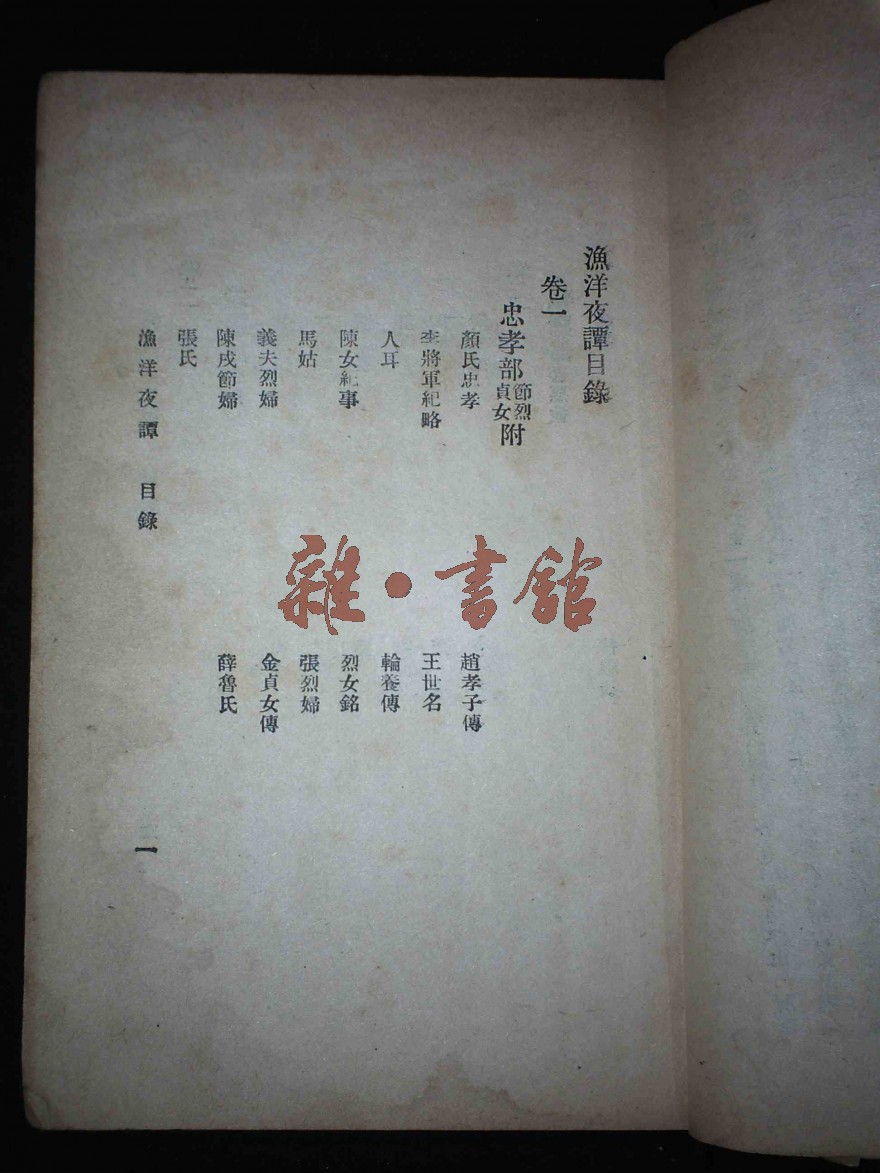 漁洋夜譚目錄
卷一
忠孝部節烈貞女附
顏氏忠孝
趙孝子傳
李將軍紀略
王世名
人耳
輪養傳
陳女紀事
烈女銘
馬姑
張烈婦
義夫烈婦
金貞女傳
陳戍節婦
薛魯氏
張氏
漁洋夜譚 目錄
一
雜·書館